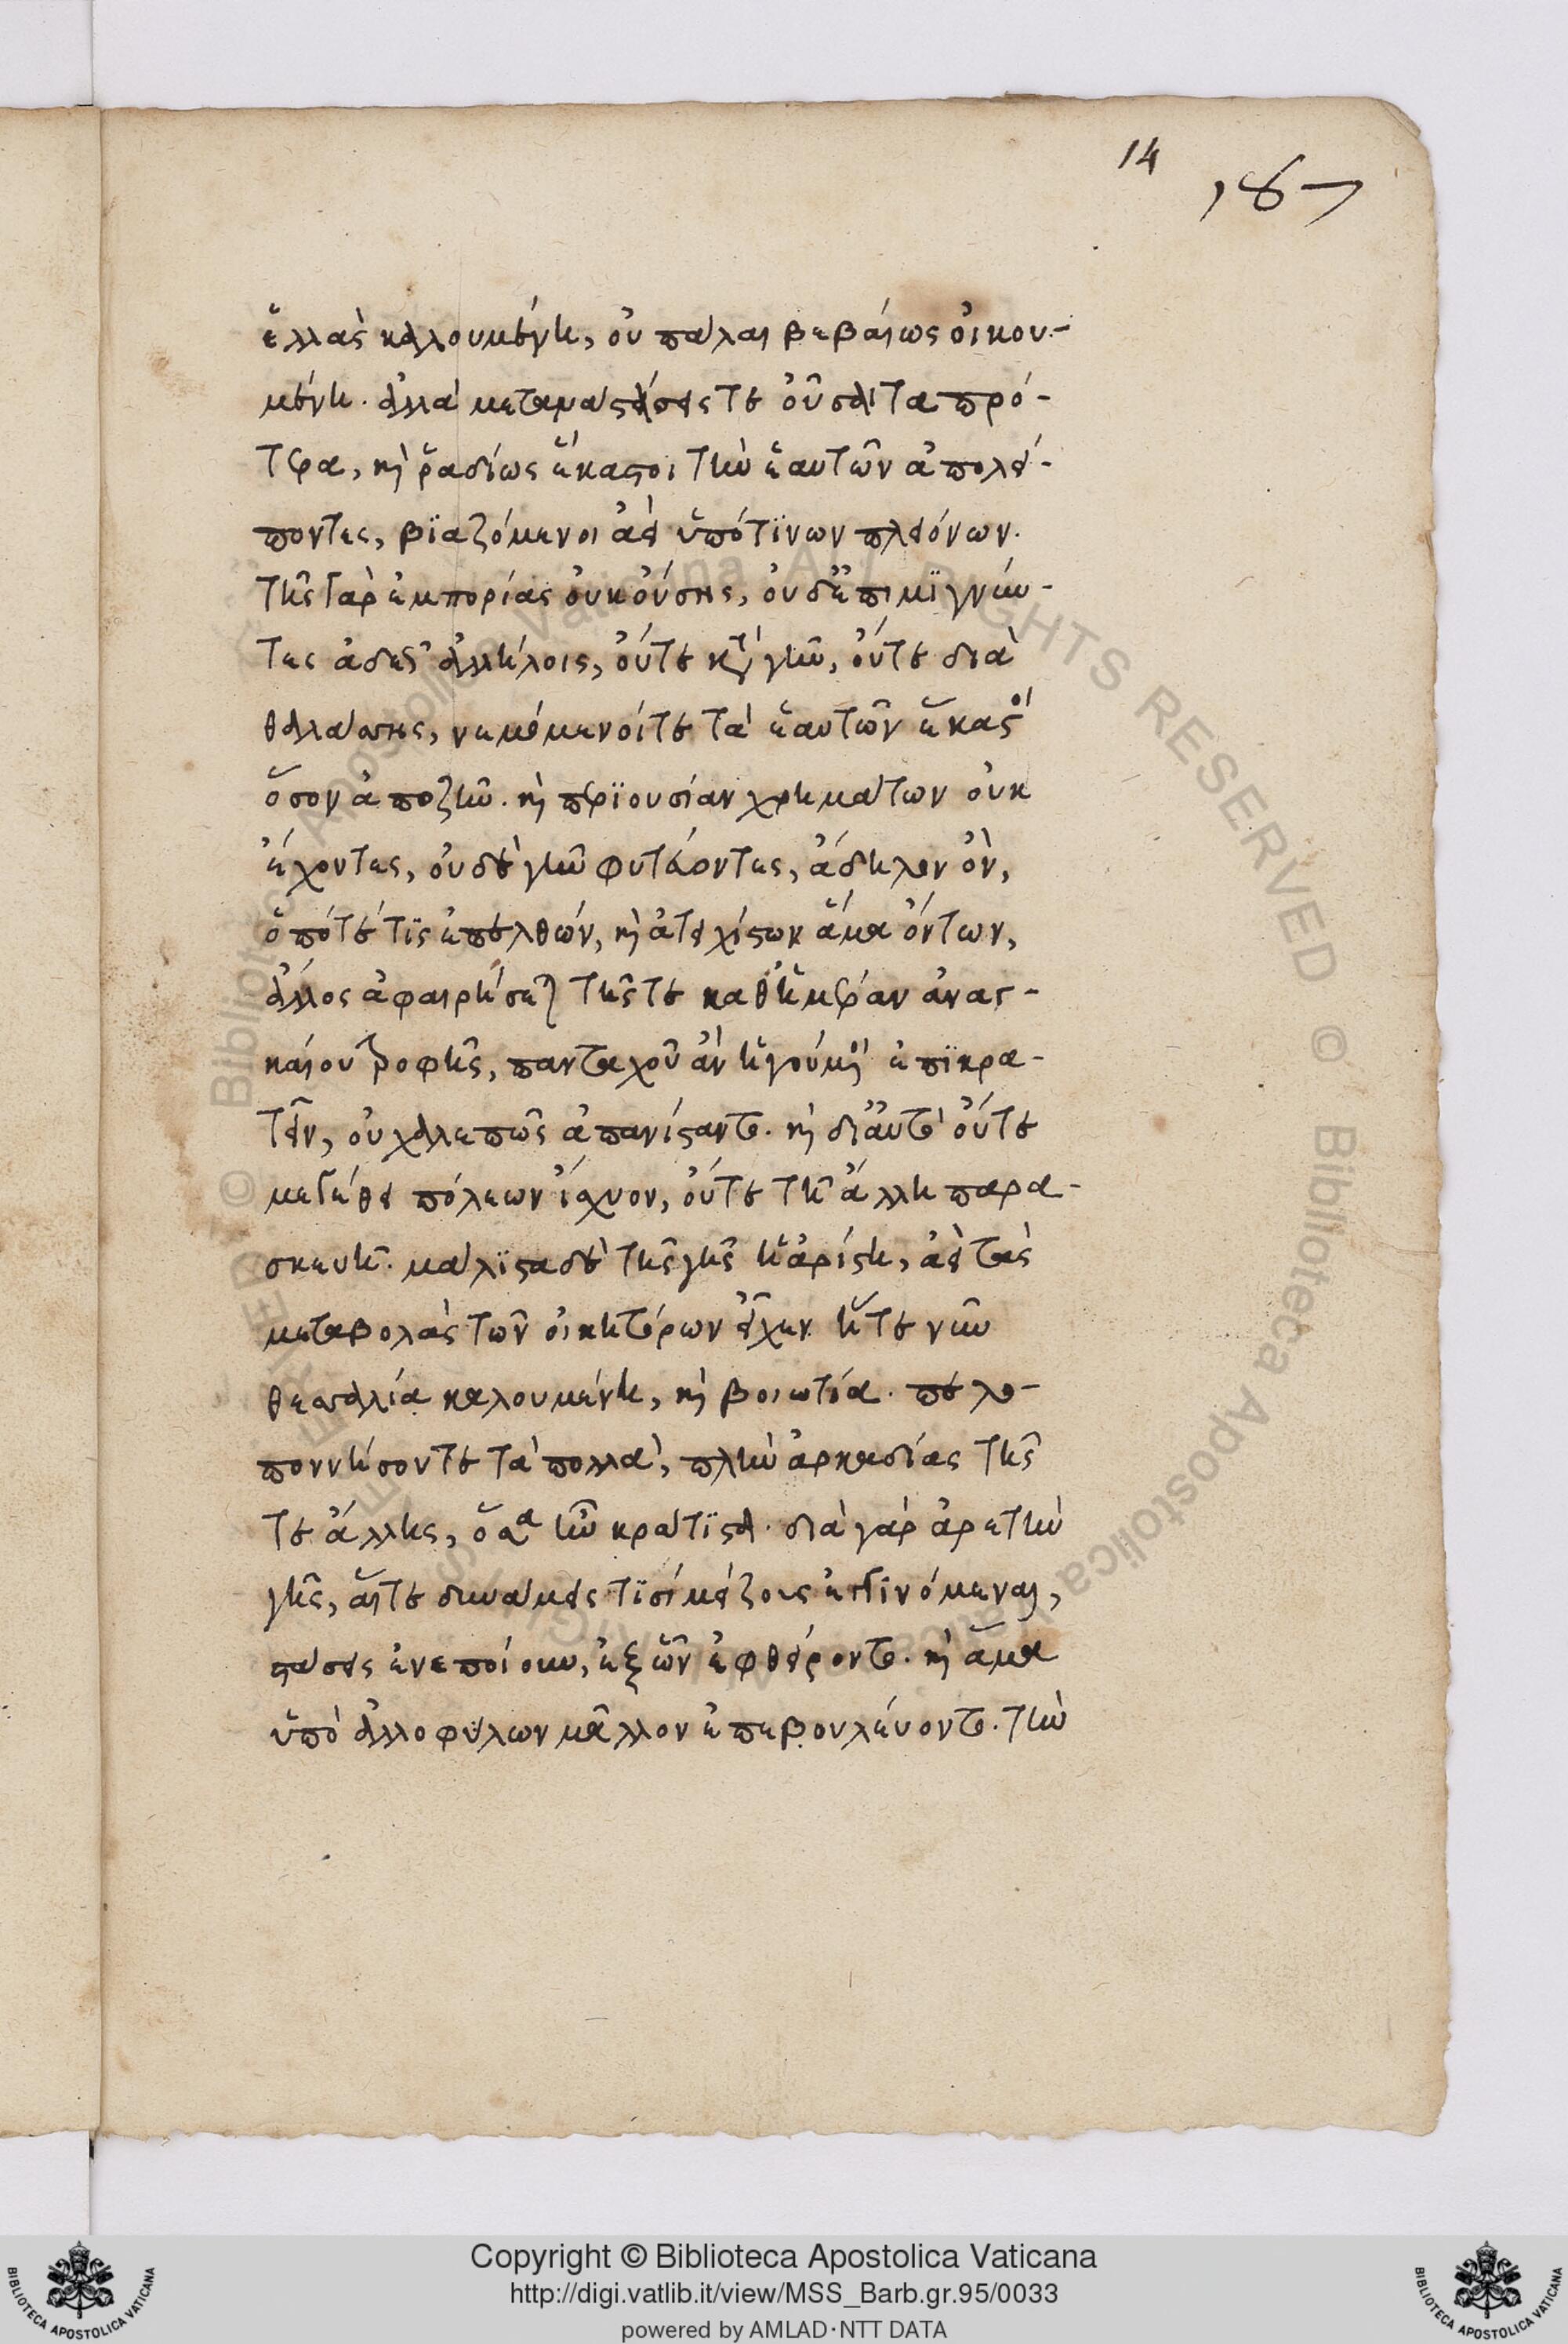 14
187
ἑλλὰς καλουμένη, οὐ πάλαι βεβαίως οἰκου-
μένη. ἀλλὰ μεταναστάσεις τε οὖσαι τὰ πρό-
τερα, καὶ ῥαδίως ἕκαστοι τὴν ἑαυτῶν ἀπολεί-
ποντες, βϊαζόμενοι ἀεὶ ὑπό τϊνων πλειόνων.
τῆς γὰρ ἐμπορίας οὐκ οὔσης, οὐδ' ἐπιμϊγνύν-
τες ἀδεῶς ἀλλήλοις, οὔτε κατὰ γῆν, οὔτε διὰ
θαλάσσης, νεμόμενοί τε τὰ ἑαυτῶν ἕκαστοι
ὅσον ἀποζῆν. καὶ περϊουσίαν χρημάτων οὐκ
ἔχοντες, οὐδὲ γῆν φυτεύοντες, ἄδηλον ὂν,
ὁπότέ τϊς ἐπελθών, καὶ ἀτειχίστων ἅμα ὄντων,
ἄλλος ἀφαιρήσεται τῆς τε καθ' ἡμέραν ἀναγ-
καίου τροφῆς, πανταχοῦ ἂν ἡγούμενοι ἐπϊκρα-
τεῖν, οὐ χαλεπῶς ἀπανίσταντο. καὶ δι' αὐτὸ οὔτε
μεγέθει πόλεων ἴσχυον, οὔτε τῆ ἄλλη παρα-
σκευῆ. μάλϊστα δὲ τῆς γῆς ἡ ἀρίστη, ἀεὶ τὰς
μεταβολὰς τῶν οἰκητόρων εἶχεν ἥ τε νῦν
θεσσαλία καλουμένη, καὶ βοιωτία. πελο-
ποννήσου τε τὰ πολλὰ, πλὴν ἀρκαδίας τῆς
τε ἄλλης, ὅσα ἦν κράτϊστα. διὰ γὰρ ἀρετὴν
γῆς, αἵ τε δυνάμεις τϊσὶ μείζους ἐγγϊνόμεναι,
στάσεις ἐνεποίουν, ἐξ ὧν ἐφθείροντο. καὶ ἅμα
ὑπὸ ἀλλοφύλων μᾶλλον ἐπεβουλεύοντο. τὴν
Copyright © Biblioteca Apostolica Vaticana
http://digi.vatlib.it/view/MSS_Barb.gr.95/0033
powered by AMLAD·NTT DATA